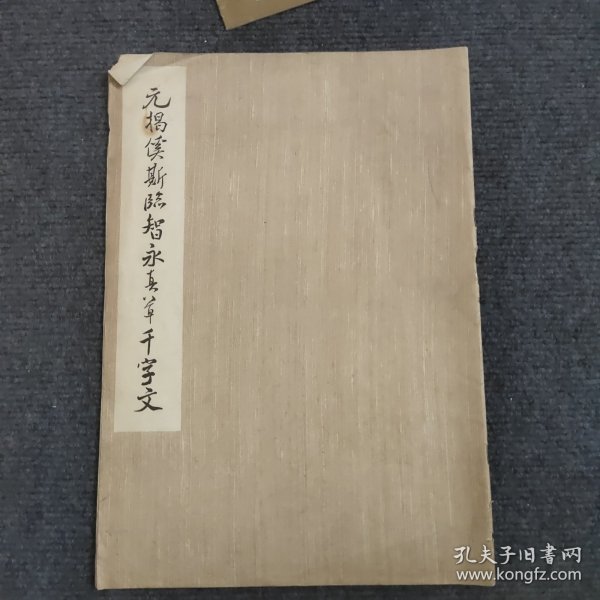 元揭傒斯臨智永真草千字文
孔夫子旧書网
www.kongfz.com